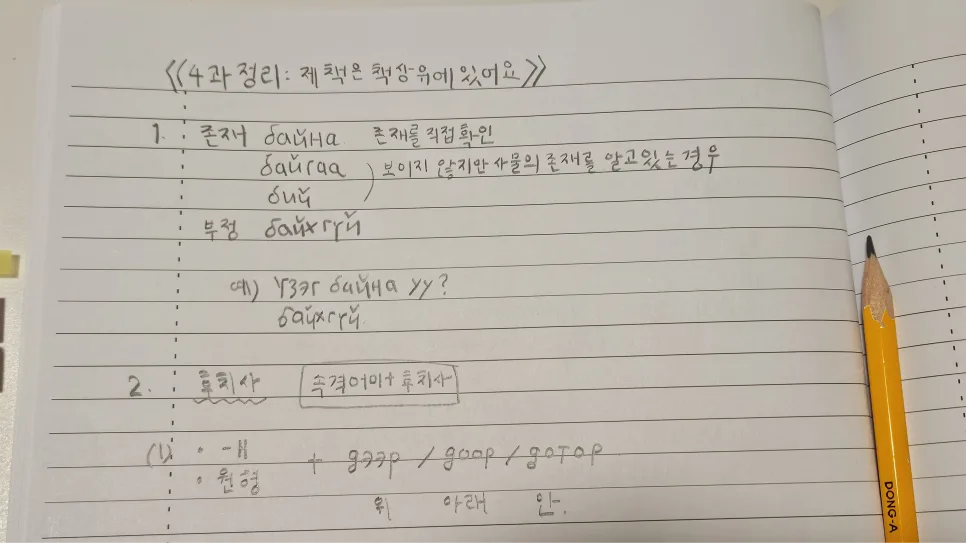 《4과 정리: 제 책은 책상 위에 있어요》
1. 존재 байна 존재를 직접 확인
байгаа
бий
) 보이지 않지만 사물의 존재를 알고있는 경우
부정 байхгүй
예) Үзэг байна уу?
байхгүй.
2. 후치사 속격어미+후치사
(1) · -ний
· 원형
+ дээр / доор / дотор
위 아래 안.
DONG-A